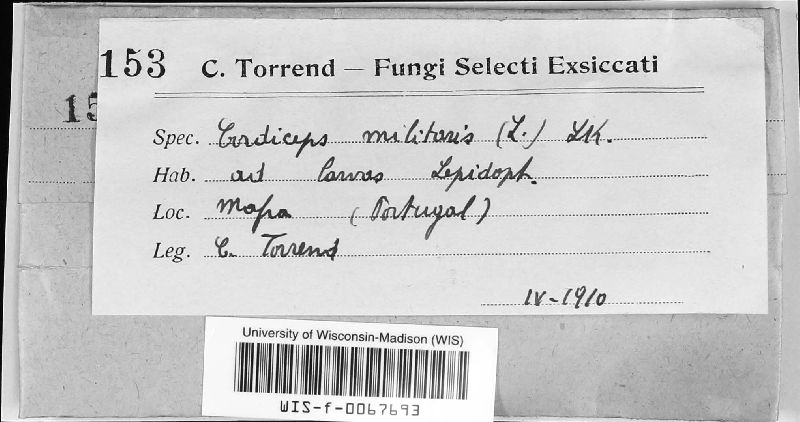 153 C. Torrend — Fungi Selecti Exsiccati
15
Spec. Cordiceps militaris (L.) LK.
Hab. ad larvas Lepidopt.
Loc. Mafra (Portugal)
Leg. C. Torrend
IV-1910
University of Wisconsin-Madison (WIS)
WIS-f-0067693